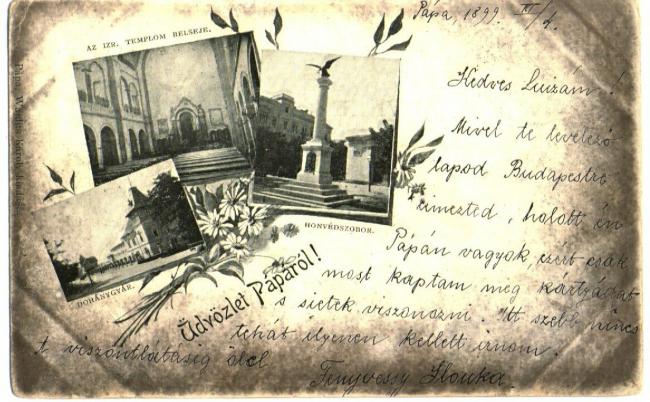 Pápa, 1899. VI/2.
AZ IZR. TEMPLOM BELSEJE.
HONVÉDSZOBOR.
DOHÁNYGYÁR.
Üdvözlet Pápáról!
Kedves Luizám!
Mivel te levelező
lapod Budapestre
cimezted, holott én
Pápán vagyok, ezért csak
most kaptam meg kártyádat
s sietek viszonozni. Itt szebb nincs
tehát ilyenen kellett irnom.
A viszontlátásig ölel
Fenyvessy Ilonka.